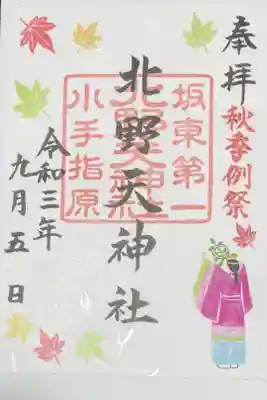 奉拝
秋季例祭
坂東第一
北野天神社
北野天神社
小手指原
令和三年
九月五日